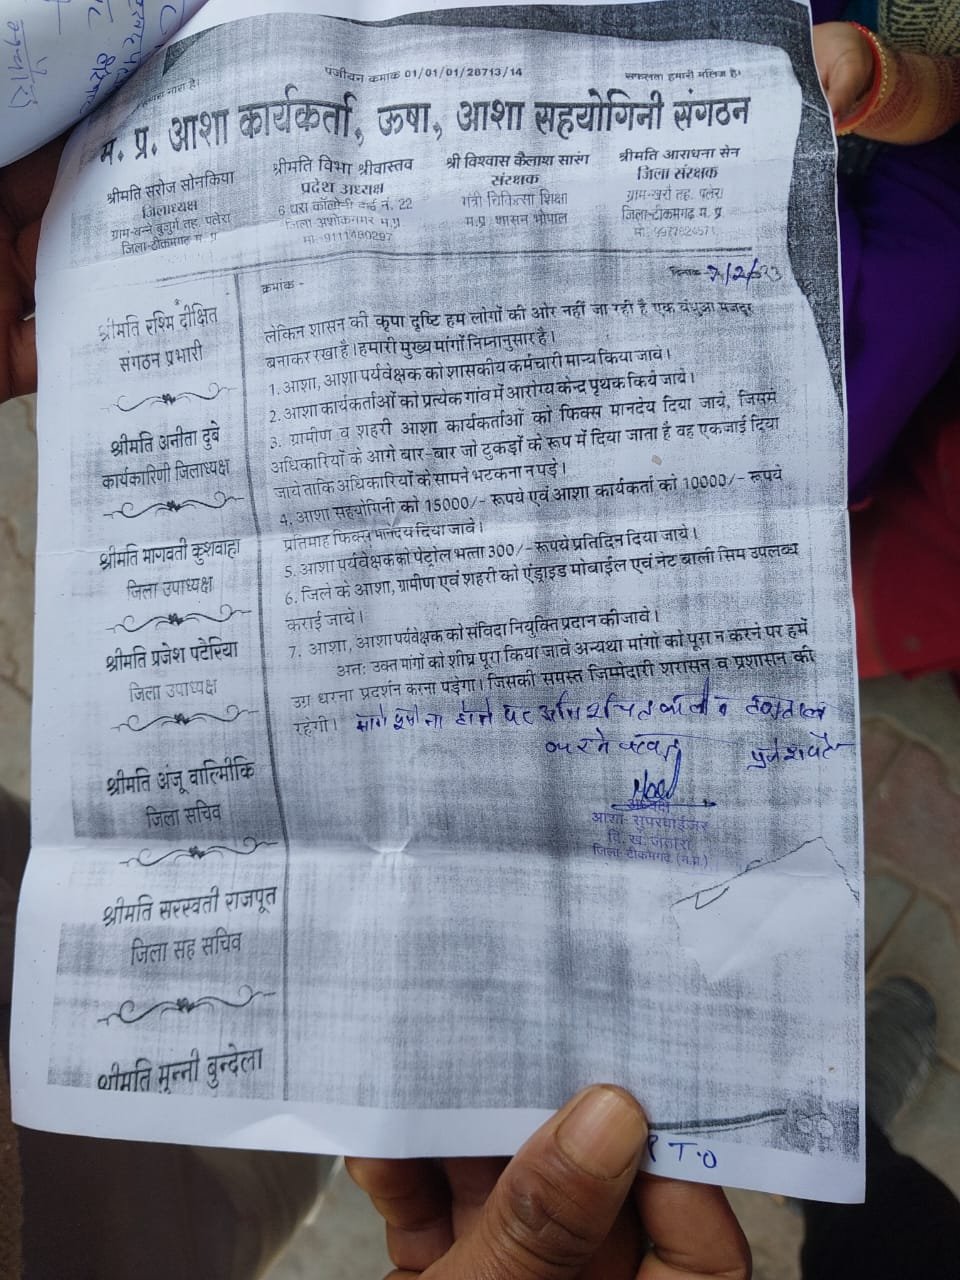 पंजीयन कमाक 01/01/01/28713/14
सफलता हमारी मंजिल है।
म. प्र. आशा कार्यकर्ता, ऊषा, आशा सहयोगिनी संगठन
श्रीमति सरोज सोनकिया
जिलाध्यक्ष
ग्राम-बन्ने बुजुर्ग तह. पलेरा
जिला-टीकमगढ़ म. प्र
श्रीमति विभा श्रीवास्तव
प्रदेश अध्यक्ष
6 घरा कॉलोनी वार्ड नं. 22
जिला अशोकनगर म.प्र
मो.-9111480297
श्री विश्वास कैलाश सारंग
संरक्षक
मंत्री चिकित्सा शिक्षा
म.प्र. शासन भोपाल
श्रीमति आराधना सेन
जिला संरक्षक
ग्राम-खरो तह. पलेरा
जिला-टीकमगढ़ म. प्र.
क्रमाक -
दिनाक-
श्रीमति रश्मि दीक्षित
संगठन प्रभारी
श्रीमति अनीता दुबे
कार्यकारिणी जिलाध्यक्ष
श्रीमति भागवती कुशवाहा
जिला उपाध्यक्ष
श्रीमति प्रजेश पटैरिया
जिला उपाध्यक्ष
श्रीमति अंजू वाल्मिीकि
जिला सचिव
श्रीमति सरस्वती राजपूत
जिला सह सचिव
श्रीमति मुन्नी बुन्देला
लेकिन शासन की कृपा दृष्टि हम लोगों की ओर नहीं जा रही है एक बंधुआ मजदूर
बनाकर रखा है। हमारी मुख्य मांगों निम्नानुसार है।
1. आशा, आशा पर्यवेक्षक को शासकीय कर्मचारी मान्य किया जावे।
2. आशा कार्यकर्ताओं को प्रत्येक गांव में आरोग्य केन्द्र पृथक किये जाये।
3. ग्रामीण व शहरी आशा कार्यकर्ताओं को फिक्स मानदेय दिया जाये, जिससे
अधिकारियों के आगे बार-बार जो टुकड़ों के रूप में दिया जाता है वह एकजाई दिया
जाये ताकि अधिकारियों के सामने भटकना न पड़े।
4. आशा सहयोगिनी को 15000/- रूपये एवं आशा कार्यकर्ता को 10000/- रूपये
प्रतिमाह फिक्स मानदेय दिया जावे।
5. आशा पर्यवेक्षक को पेट्रोल भत्ता 300/- रूपये प्रतिदिन दिया जाये।
6. जिले के आशा, ग्रामीण एवं शहरी को एंड्राइड मोबाईल एवं नेट बाली सिम उपलब्ध
कराई जाये।
7. आशा, आशा पर्यवेक्षक को संविदा नियुक्ति प्रदान की जावे।
अतः उक्त मांगों को शीघ्र पूरा किया जावे अन्यथा मांगों को पूरा न करने पर हमें
उग्र धरना प्रदर्शन करना पड़ेगा। जिसकी समस्त जिम्मेदारी शरासन व प्रशासन की
रहेगी।
अध्यक्ष
आशा सुपरवाईजर
वि. ख. जतारा
जिला-टीकमगढ़ (म.प्र.)
P T.O